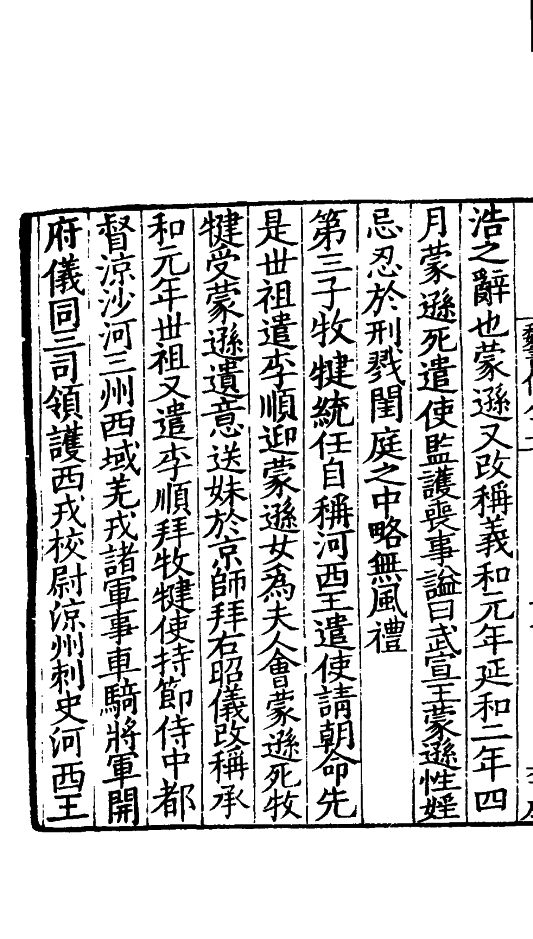 浩之辭也蒙遜又改稱義和元年延和二年四
月蒙遜死遣使監護喪事謚曰武宣王蒙遜性婬
忌忍於刑戮閨庭之中略無風禮
第三子牧犍統任自稱河西王遣使請朝命先
是世祖遣李順迎蒙遜女為夫人會蒙遜死牧
犍受蒙遜遺意送妹於京師拜右昭儀改稱承
和元年世祖又遣李順拜牧犍使持節侍中都
督涼沙河三州西域羌戎諸軍事車騎將軍開
府儀同三司領護西戎校尉涼州刺史河西王